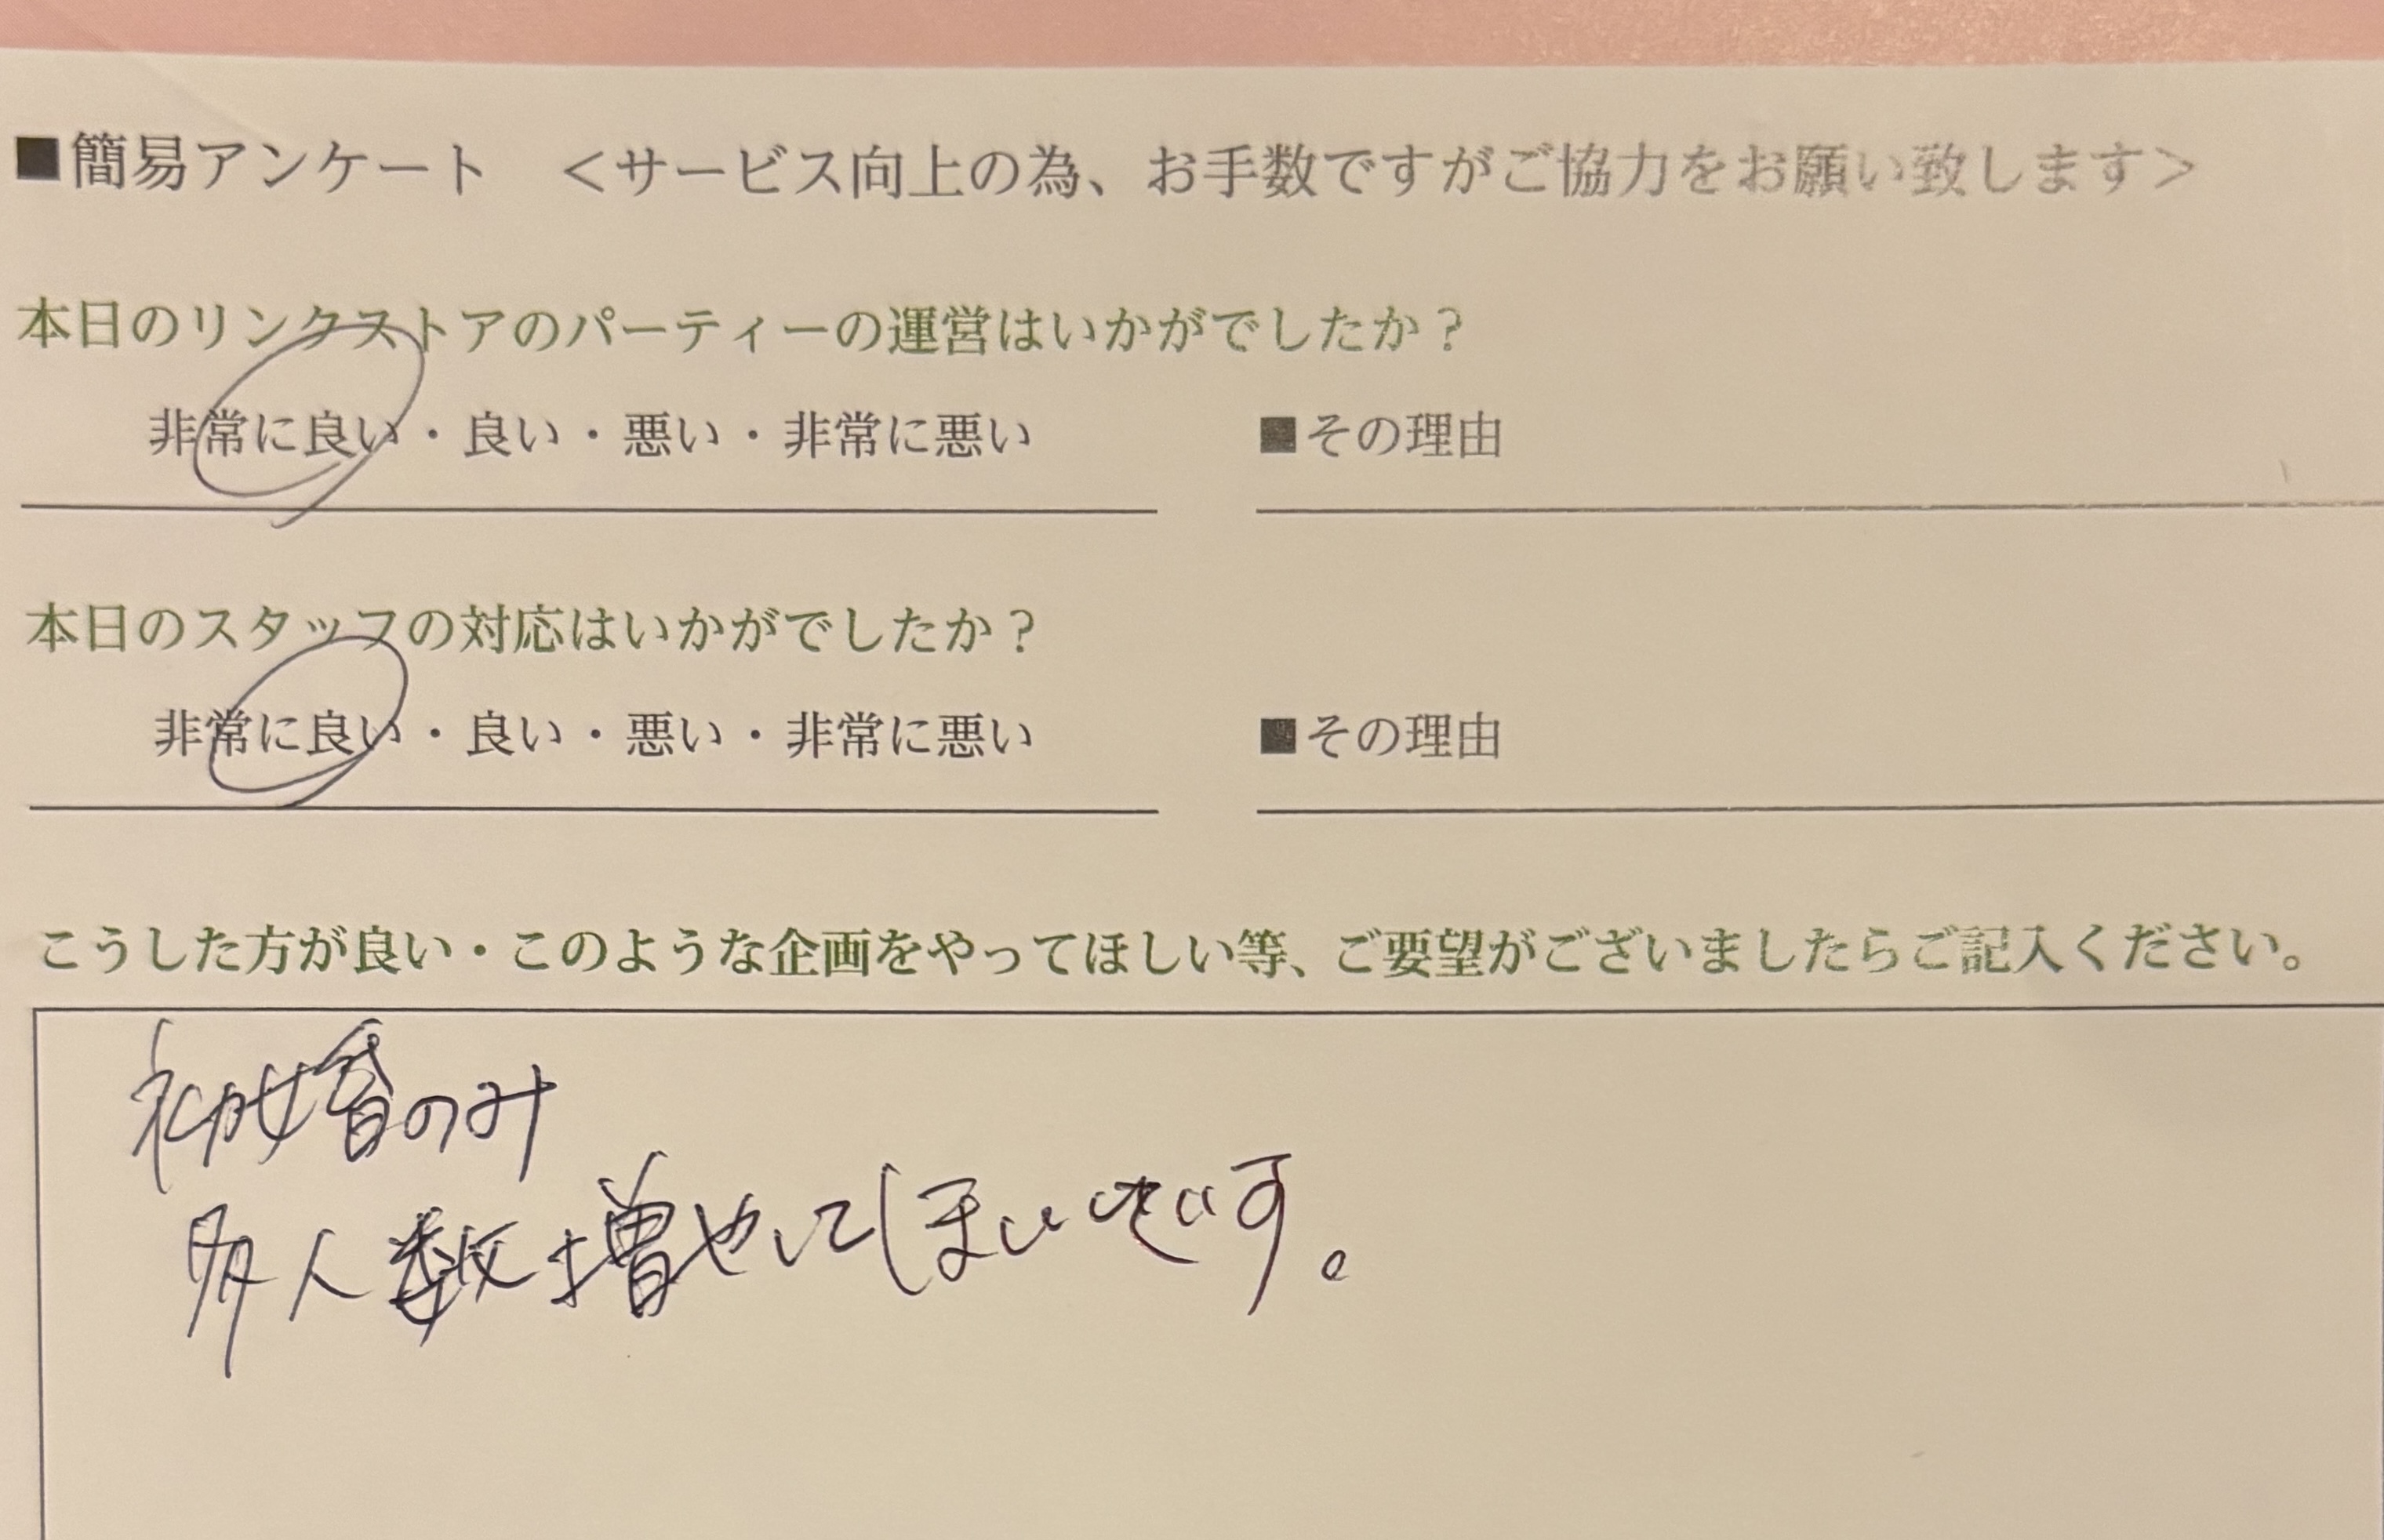 ■簡易アンケート <サービス向上の為、お手数ですがご協力をお願い致します>
本日のリンクストアのパーティーの運営はいかがでしたか？
非常に良い・良い・悪い・非常に悪い ■その理由
本日のスタッフの対応はいかがでしたか？
非常に良い・良い・悪い・非常に悪い ■その理由
こうした方が良い・このような企画をやってほしい等、ご要望がございましたらご記入ください。
初婚のみ
多人数増やしてほしいです。